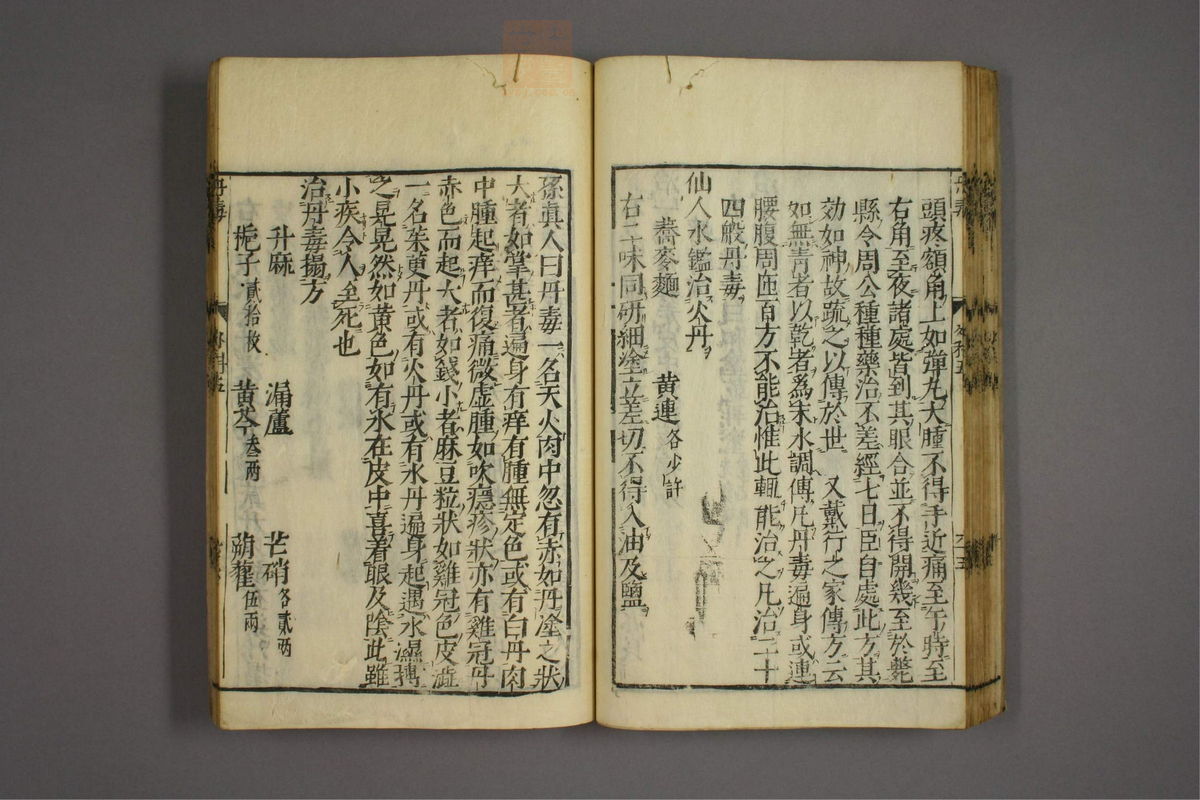 頭疼額角上如彈丸大腫不得手近痛至午時至
右角至夜諸處皆到其眼合並不得開幾至於斃
縣令周公種種藥治不差經七日臣自處此方其
効如神故疏之以傳於世　又戴行之家傳方云
如無青者以乾者為末水調傅凡丹毒遍身或連
腰腹周匝百方不能治惟此輒能治之凡治二十
四般丹毒
仙人水鑑治火丹
蕎麥麵　黄連各少許
右二味同研細塗立差切不得入油及鹽
孫真人曰丹毒一名天火肉中忽有赤如丹塗之狀
大者如掌甚者遍身有痒有腫無定色或有白丹肉
中腫起痒而復痛微虛腫如吹癮疹狀亦有雞冠丹
赤色而起大者如錢小者麻豆粒狀如雞冠色皮澁
一名茱萸丹或有火丹或有水丹遍身起遇水濕搏
之晃晃然如黄色如有水在皮中喜着眼及陰此雖
小疾令人至死也
治丹毒搨方
升麻　漏蘆　芒硝各貳兩
梔子貳拾枚　黄芩叁兩　蒴藋伍兩
丹毒
外科五